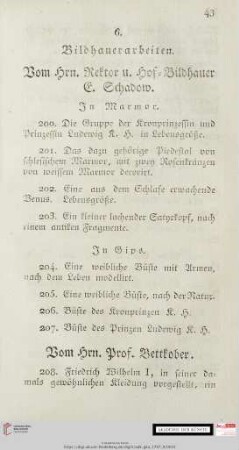 43
6.
Bildhauerarbeiten.
Vom Hrn. Rektor u. Hof-Bildhauer
E. Schadow.
In Marmor.
200. Die Gruppe der Kronprinzessin und
Prinzessin Ludewig K. H. in Lebensgröße.
201. Das dazu gehörige Piedestal von
schlesischem Marmor, mit zwey Rosenkränzen
von weissem Marmor decorirt.
202. Eine aus dem Schlafe erwachende
Venus. Lebensgröße.
203. Ein kleiner lachender Satyrkopf, nach
einem antiken Fragmente.
In Gips.
204. Eine weibliche Büste mit Armen,
nach dem Leben modellirt.
205. Eine weibliche Büste, nach der Natur.
206. Büste des Kronprinzen K. H.
207. Büste des Prinzen Ludewig K. H.
Vom Hrn. Prof. Bettkober.
208. Friedrich Wilhelm I, in seiner da-
mals gewöhnlichen Kleidung vorgestellt, ein
AKADEMIE DER KÜNSTE